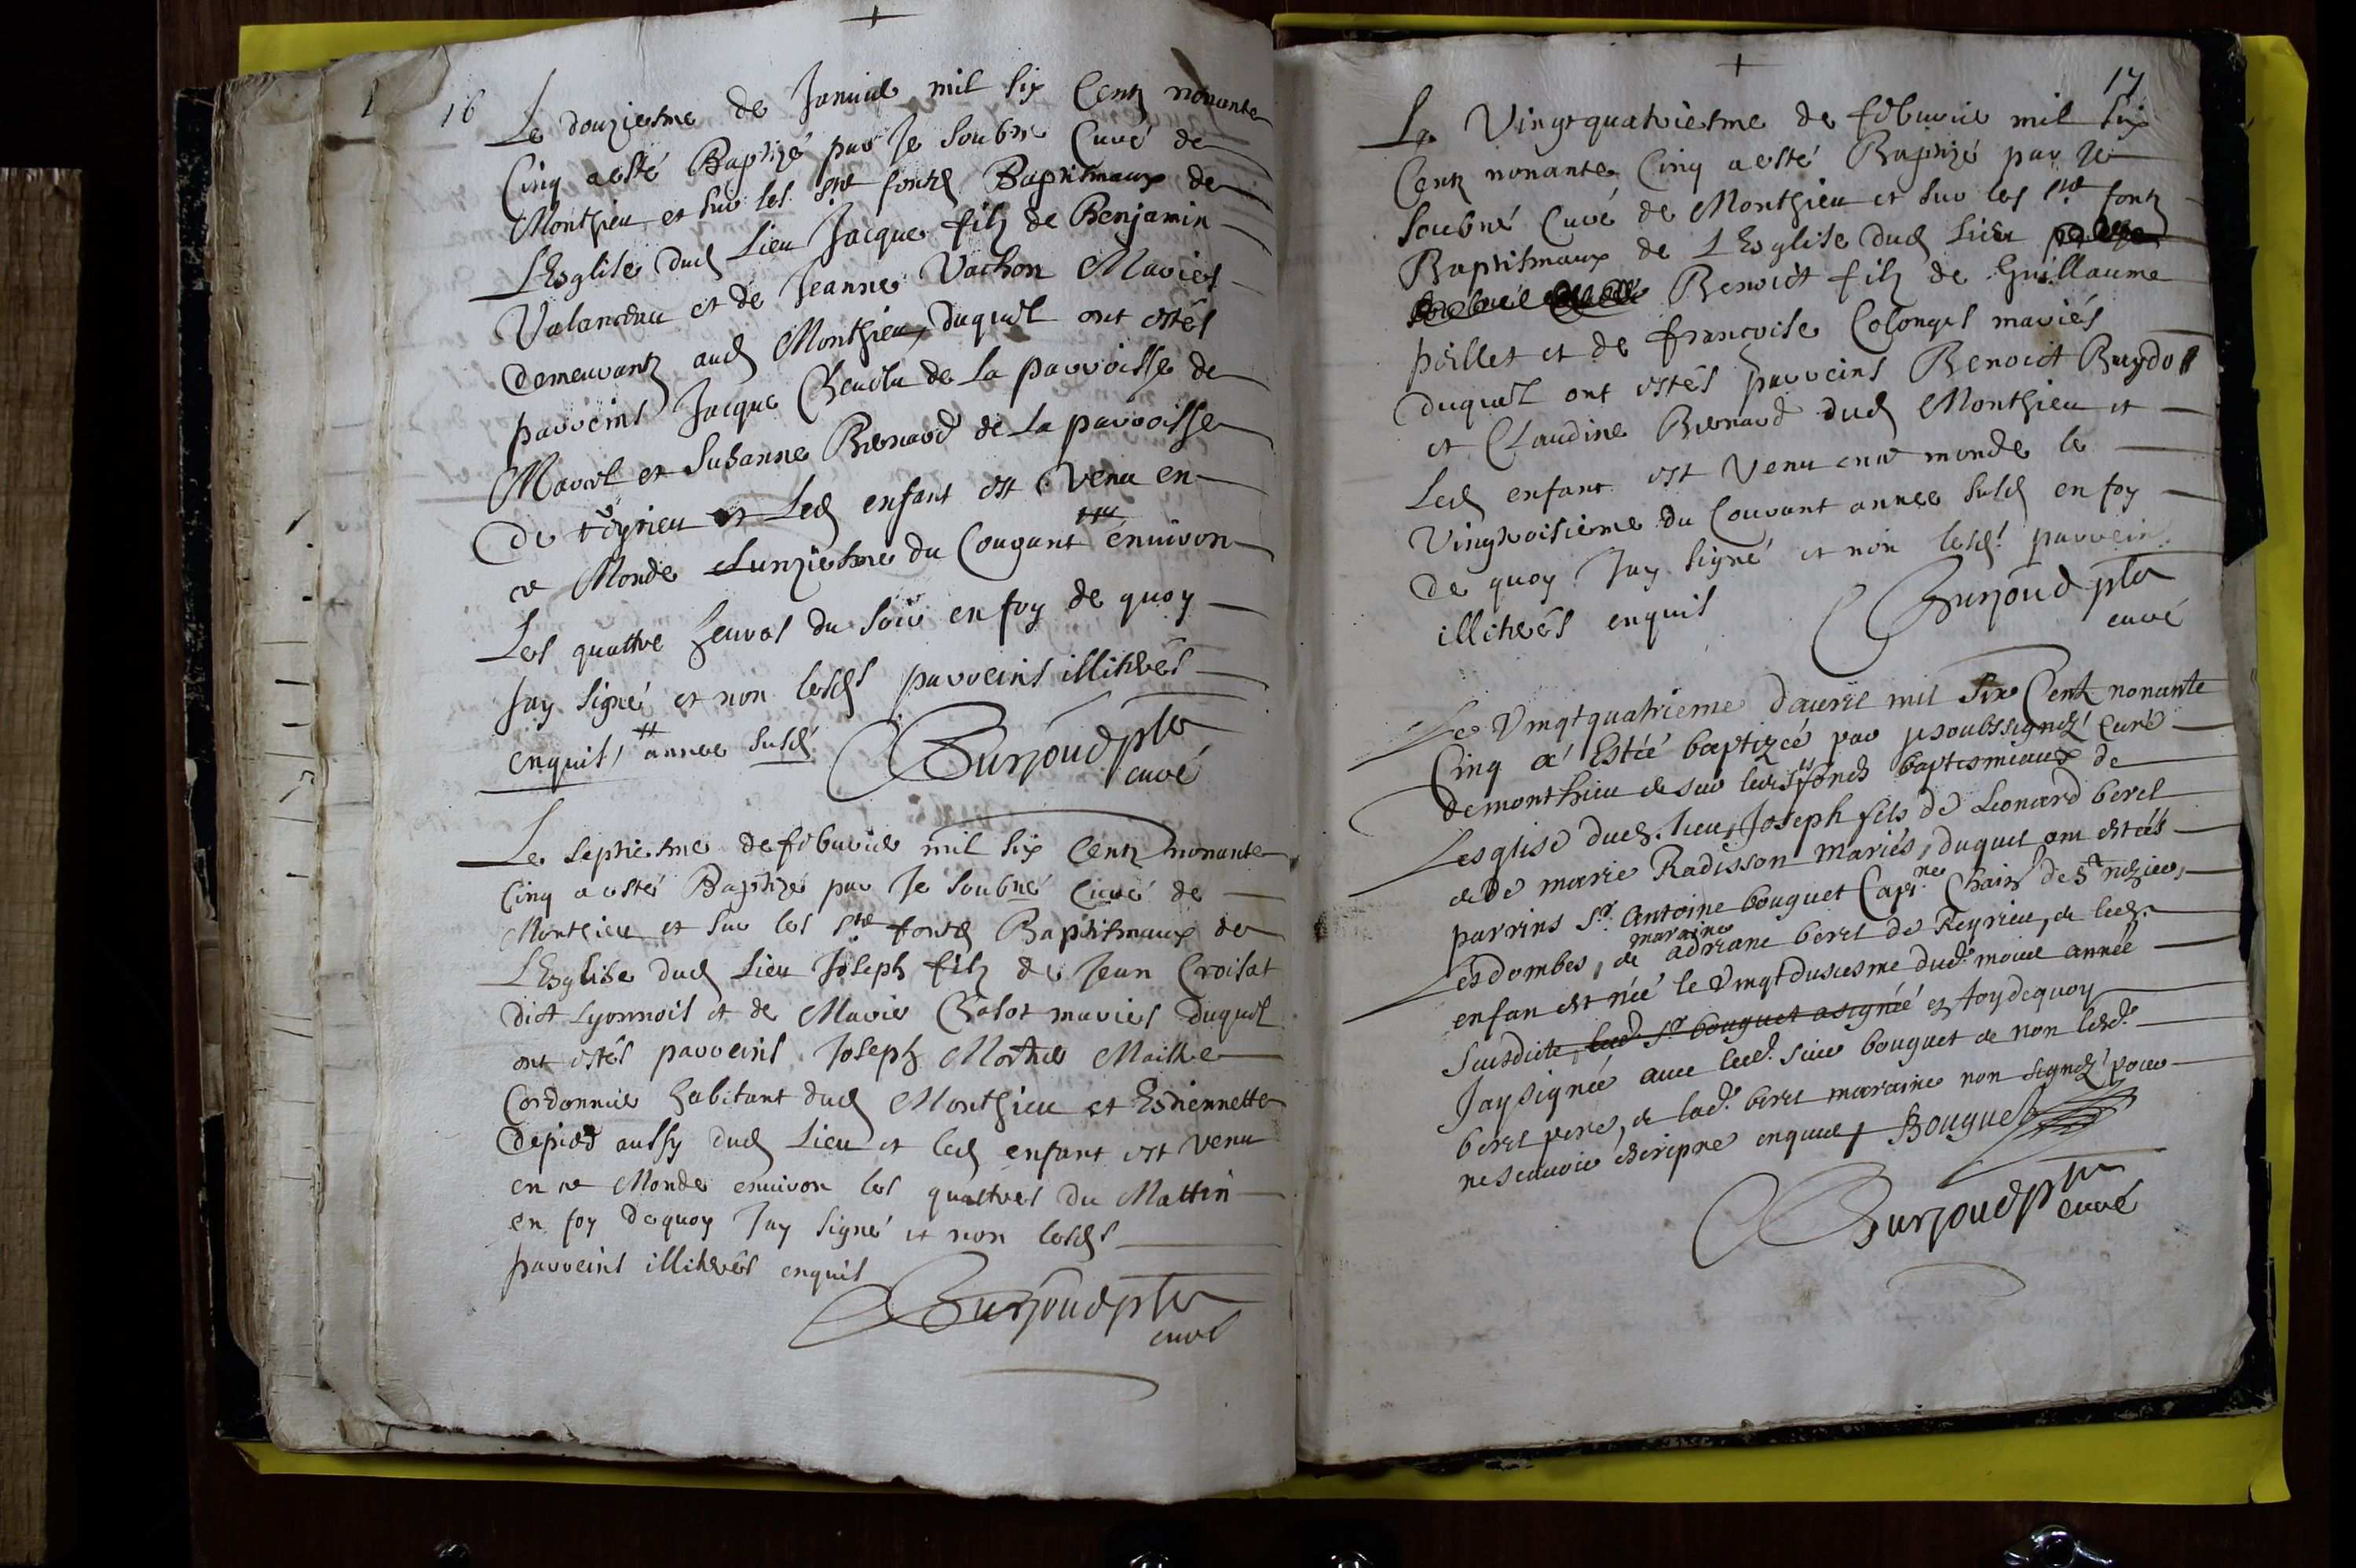 16
Le douziesme de Januier mil six Centz nonante
Cinq a esté Baptizé par Je soubne Curé de
Monthieu et sur les sts fontz Baptismaux de
L Esglise dud Lieu Jacque filz de Benjamin
Valancdau et de Jeanne Vachon Mariés
demeurantz aud Monthieu, duquel ont estés
parreins Jacque de La parroisse de
et Susanne Benard de La parroisse
De reyrieu et Led enfant est Venu en
ce Monde Lunziesme du Courant ++ enuiron
Les quattre heures du soir en foy de quoy
Jay signé et non lesds parreins illitrés
enquis / ++ annee susd
Burjoud ptre
curé
Le septiesme de feburier mil six Centz nonante
Cinq a esté Baptizé par Je soubné Curé de
Monthieu et sur les sts fontz Baptismaux de
L Esglise dud Lieu Joseph filz de Jean Croisat
dict Lyonnois et de Marie Chalot mariés duquel
ont estés parreins Joseph Maitre
Cordonnier habitant dud Monthieu et Estiennette
Depied aussy dud Lieu et led enfant est venu
en ce Monde enuiron les quattres du Mattin
en foy dequoy Jay signé et non lesds
parreins illitrés enquis
Burjoud ptre
curé
17
Le Vingtquatriesme de feburier mil six
Centz nonante Cinq a esté Baptizé par Je
soubné Curé de Monthieu et sur les sts fontz
Baptismaux de L Esglise dud Lieu
Benoict filz de Guillaume
poillet et de francoise Colonges mariés
duquel ont estés parreins Benoict Buydo
et Claudine Bernard dud Monthieu et
Led enfant est Venu en ce monde le
Vingtroisieme du Courant annee susd en foy
de quoy Jay signé et non lesds parrein
illitrés enquis
Burjoud ptre
curé
Le Vingtquatrieme dauril mil six Cent nonante
Cinq a Estéé baptizéé par je soubssigné Curé
de monthieu & sur les sts fonds baptismeaux de
Lesglise dud. lieu, Joseph fils de Leonard berel
& de marie Radisson mariés, duquel ont estéés
parrins Sr. Antoine bouguet Capne Chain de St nizier,
Les dombes, & maraine adriane berel de Reyrieu, & led.
enfan est néé le Vingtdusiesme dud. mois année
susdicte, led Sr bouguet a signéé en foy de quoy
Jay signéé auec led. sieur bouguet & non lesd.
berel pere, & lad. berel maraine non signéz pour
ne scauoir escripre enquis, Bouguet
Burjoud ptre
curé